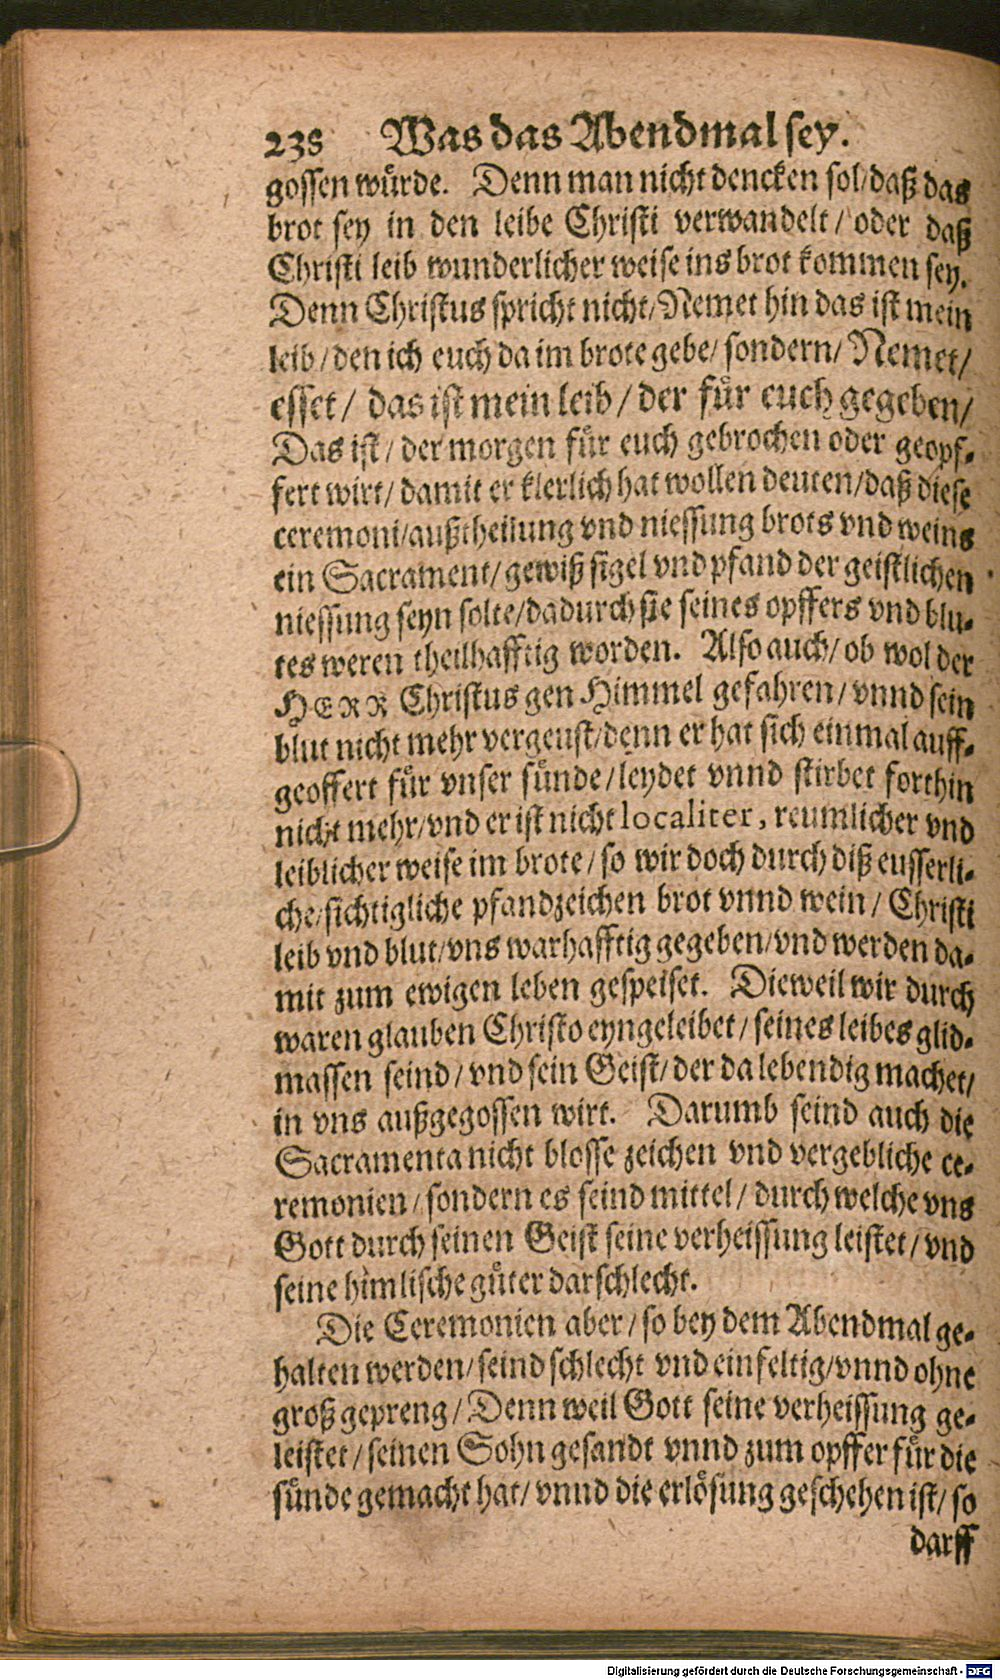 238 Was das Abendmal sey.
gossen wuͤrde. Denn man nicht dencken sol/daß das
brot sey in den leibe Christi verwandelt/ oder daß
Christi leib wunderlicher weise ins brot kommen sey.
Denn Christus spricht nicht/Nemet hin das ist mein
leib/den ich euch da im brote gebe/ sondern/ Nemet/
esset/ das ist mein leib/ der fuͤr euch gegeben/
Das ist/ der morgen fuͤr euch gebrochen oder geopf-
fert wirt/ damit er klerlich hat wollen deuten/daß diese
ceremoni/außtheilung vnd niessung brots vnd weins
ein Sacrament/gewiß sigel vnd pfand der geistlichen
niessung seyn solte/dadurch sie seines opffers vnd blu-
tes weren theilhafftig worden. Also auch/ ob wol der
HERR Christus gen Himmel gefahren/ vnnd sein
blut nicht mehr vergeust/denn er hat sich einmal auff-
geoffert fuͤr vnser suͤnde/leydet vnnd stirbet forthin
nicht mehr/vnd er ist nicht localiter, reumlicher vnd
leiblicher weise im brote/ so wir doch durch diß eusserli-
che/sichtigliche pfandzeichen brot vnnd wein/ Christi
leib vnd blut/vns warhafftig gegeben/vnd werden da-
mit zum ewigen leben gespeiset. Dieweil wir durch
waren glauben Christo eyngeleibet/ seines leibes glid-
massen seind/ vnd sein Geist/ der da lebendig machet/
in vns außgegossen wirt. Darumb seind auch die
Sacramenta nicht blosse zeichen vnd vergebliche ce-
remonien/ sondern es seind mittel/ durch welche vns
Gott durch seinen Geist seine verheissung leistet/ vnd
seine him̃lische guͤter darschlecht.
Die Ceremonien aber/ so bey dem Abendmal ge-
halten werden/ seind schlecht vnd einfeltig/vnnd ohne
groß gepreng/ Denn weil Gott seine verheissung ge-
leistet/ seinen Sohn gesandt vnnd zum opffer fuͤr die
suͤnde gemacht hat/ vnnd die erlösung geschehen ist/ so
darff
Digitalisierung gefördert durch die Deutsche Forschungsgemeinschaft - DFG